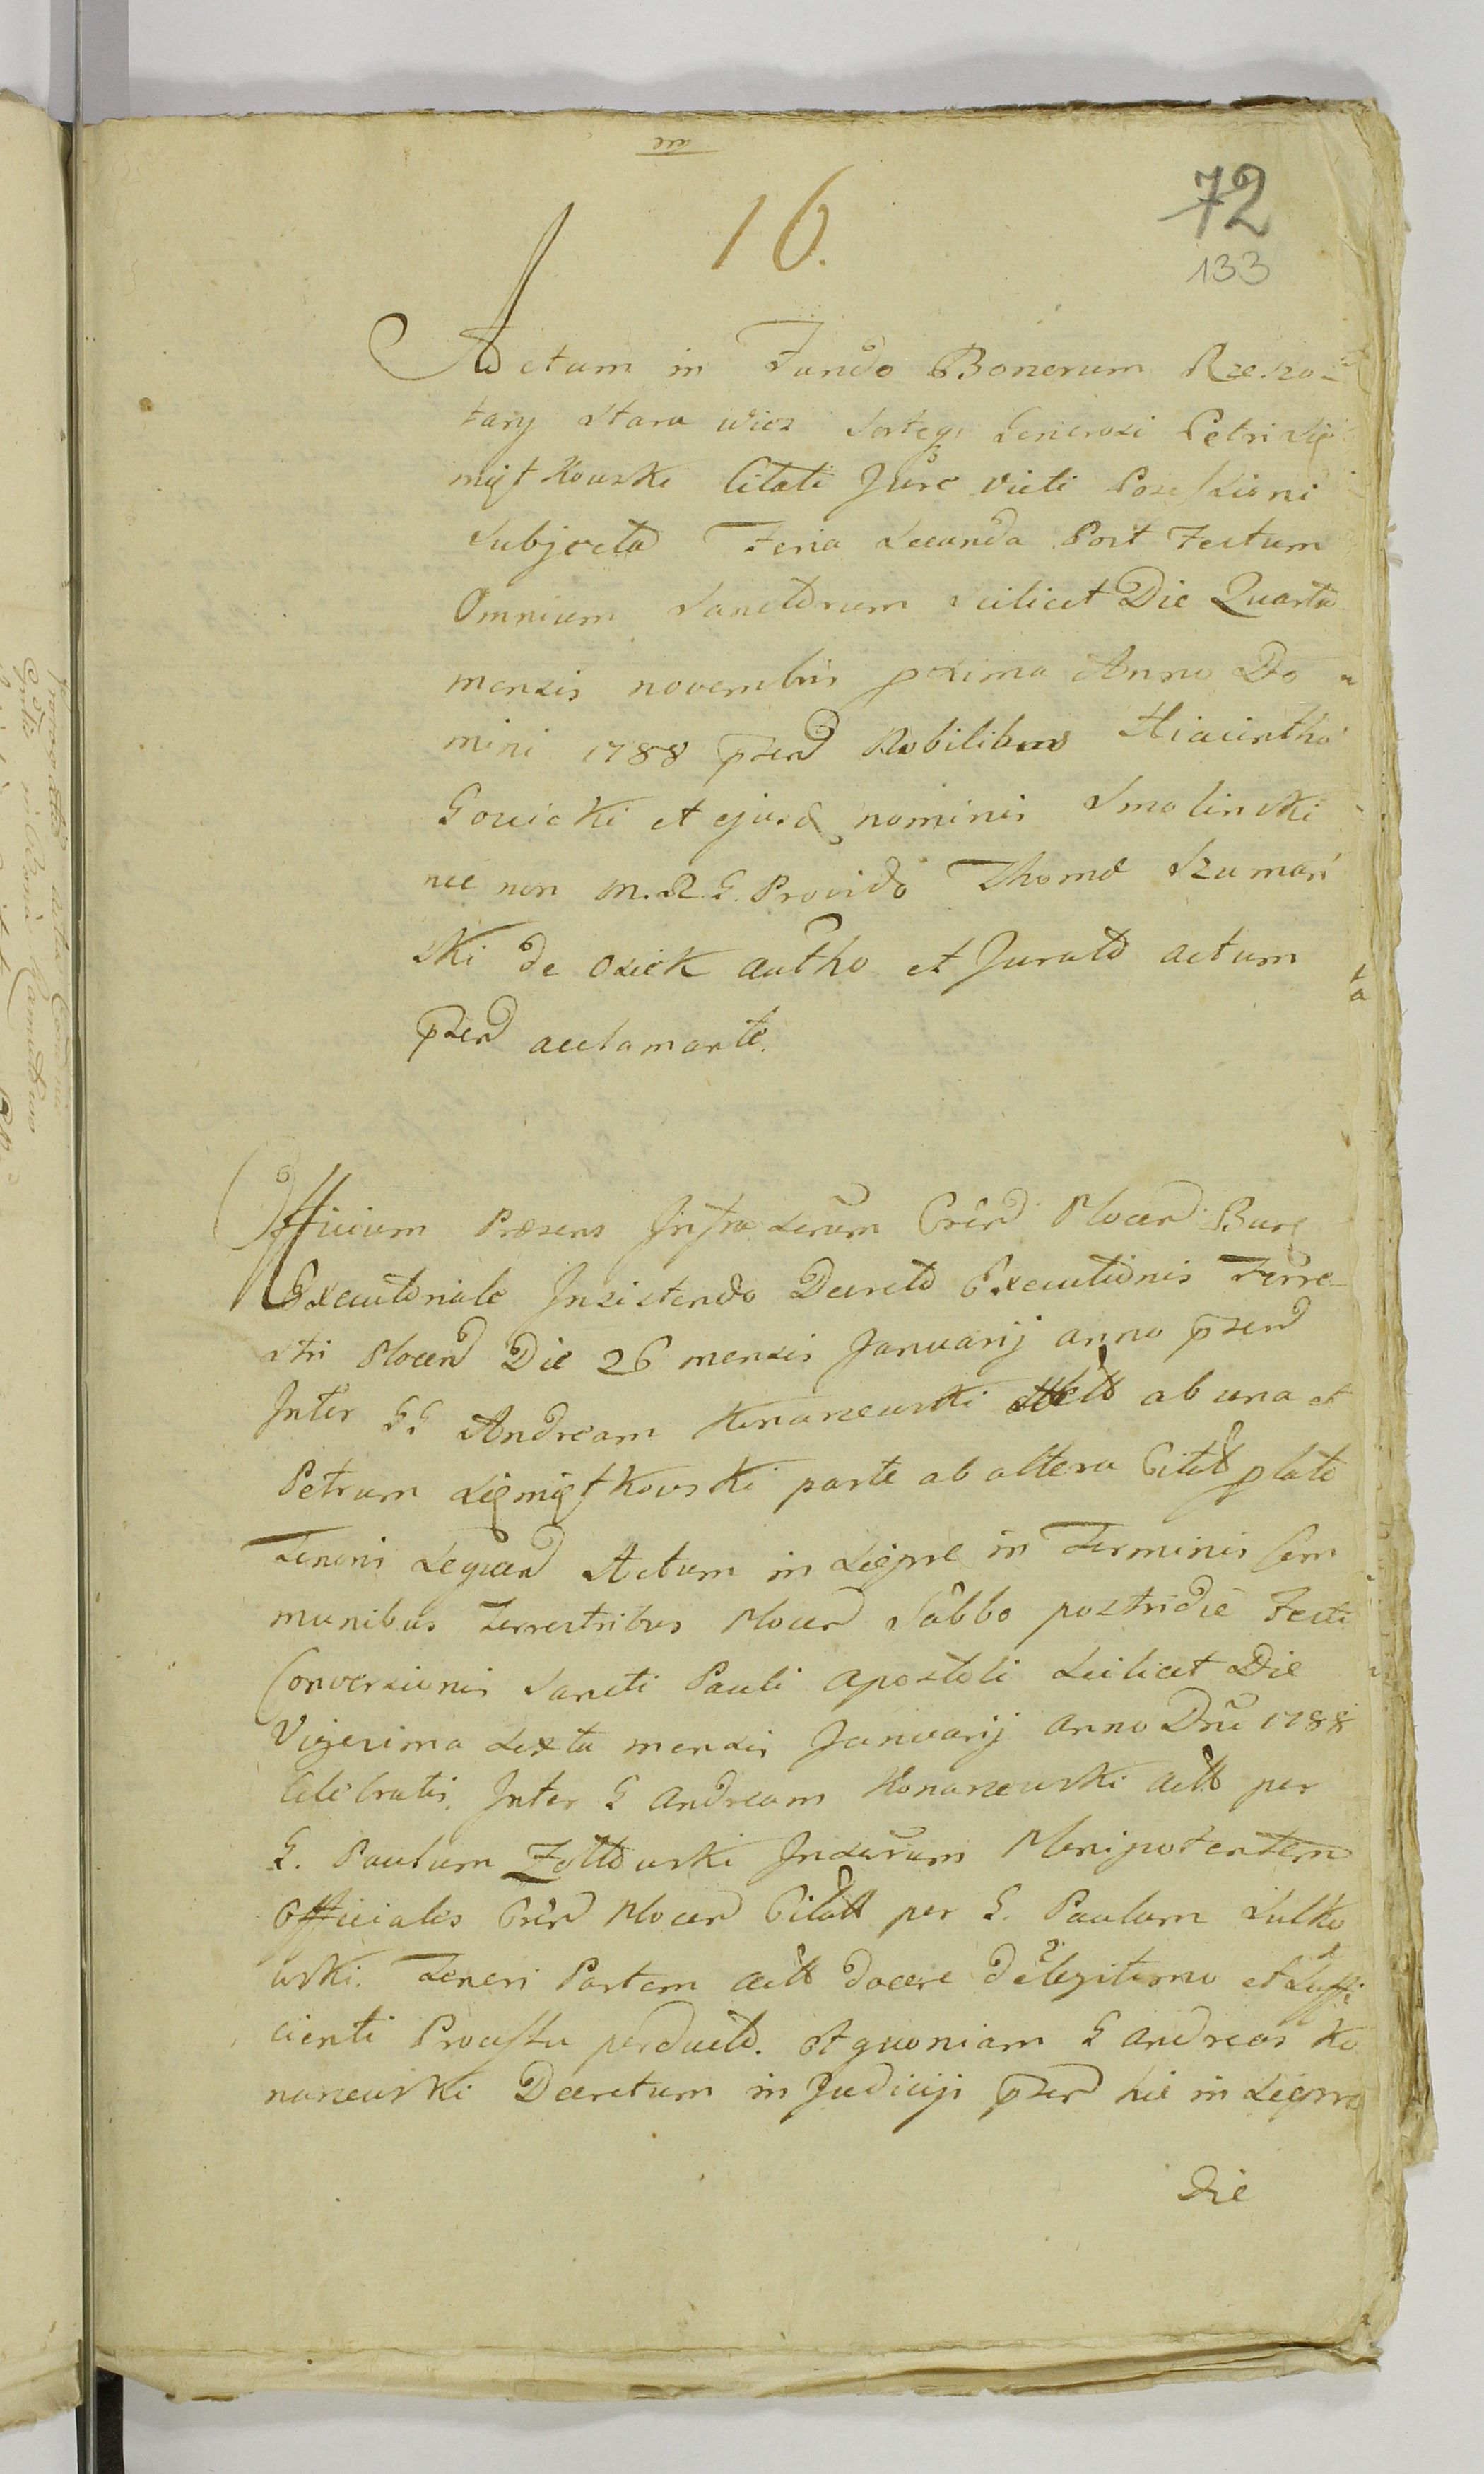 16.
72
133
Actum in Fundo Bonorum Rzeszo-
tary Stara wies Sorteqs Generosi Petri Sie
mięthowski Citati Jure victi Possessioni
Subjecta Feria Secunda Post Festum
Omnium Sanctorum scilicet Die Quarta
mensis novembris proxima Anno Do
mini 1788 pzen Nobilibus Hiacintho
Gowicki et ejusd nominis Smolinski
nec non M. R. G. Provido Thoma Szuman
ski de Osiek autho et Jurato actum
pzen acclamante.
Officium Præsens Infra Scrum Cren Plocen Burg
Executoriale Insistendo Decreto Executionis Terre-
stri Plocen Die 26 mensis Januarij anno pzen
Inter GG Andream Konarzewski ab una et
Petrum Siemiętkowski parte ab altera Citat plato
Tenoris Sequen Actum in Sieprc in Terminis Com
munibus Terrestribus Plocen Sabbo postridie Festi
Conversionis Sancti Pauli Apostoli Scilicet Die
Vigesima Sexta mensis Januarij Anno Dni 1788
Celebratis. Inter G Andream Konarzewski actt per
G. Paulum Zołtowski Inscrum Plenipotentem
Officialis Cren Plocen Citatt per G. Paulum Sulko
wski. Teneri Partem actt docere de legitimo et Suffi
cienti Processu perducto. Et quoniam G Andreas Ko
narzewski Decretum in Judicijs pzen hic in Sieprc
Die